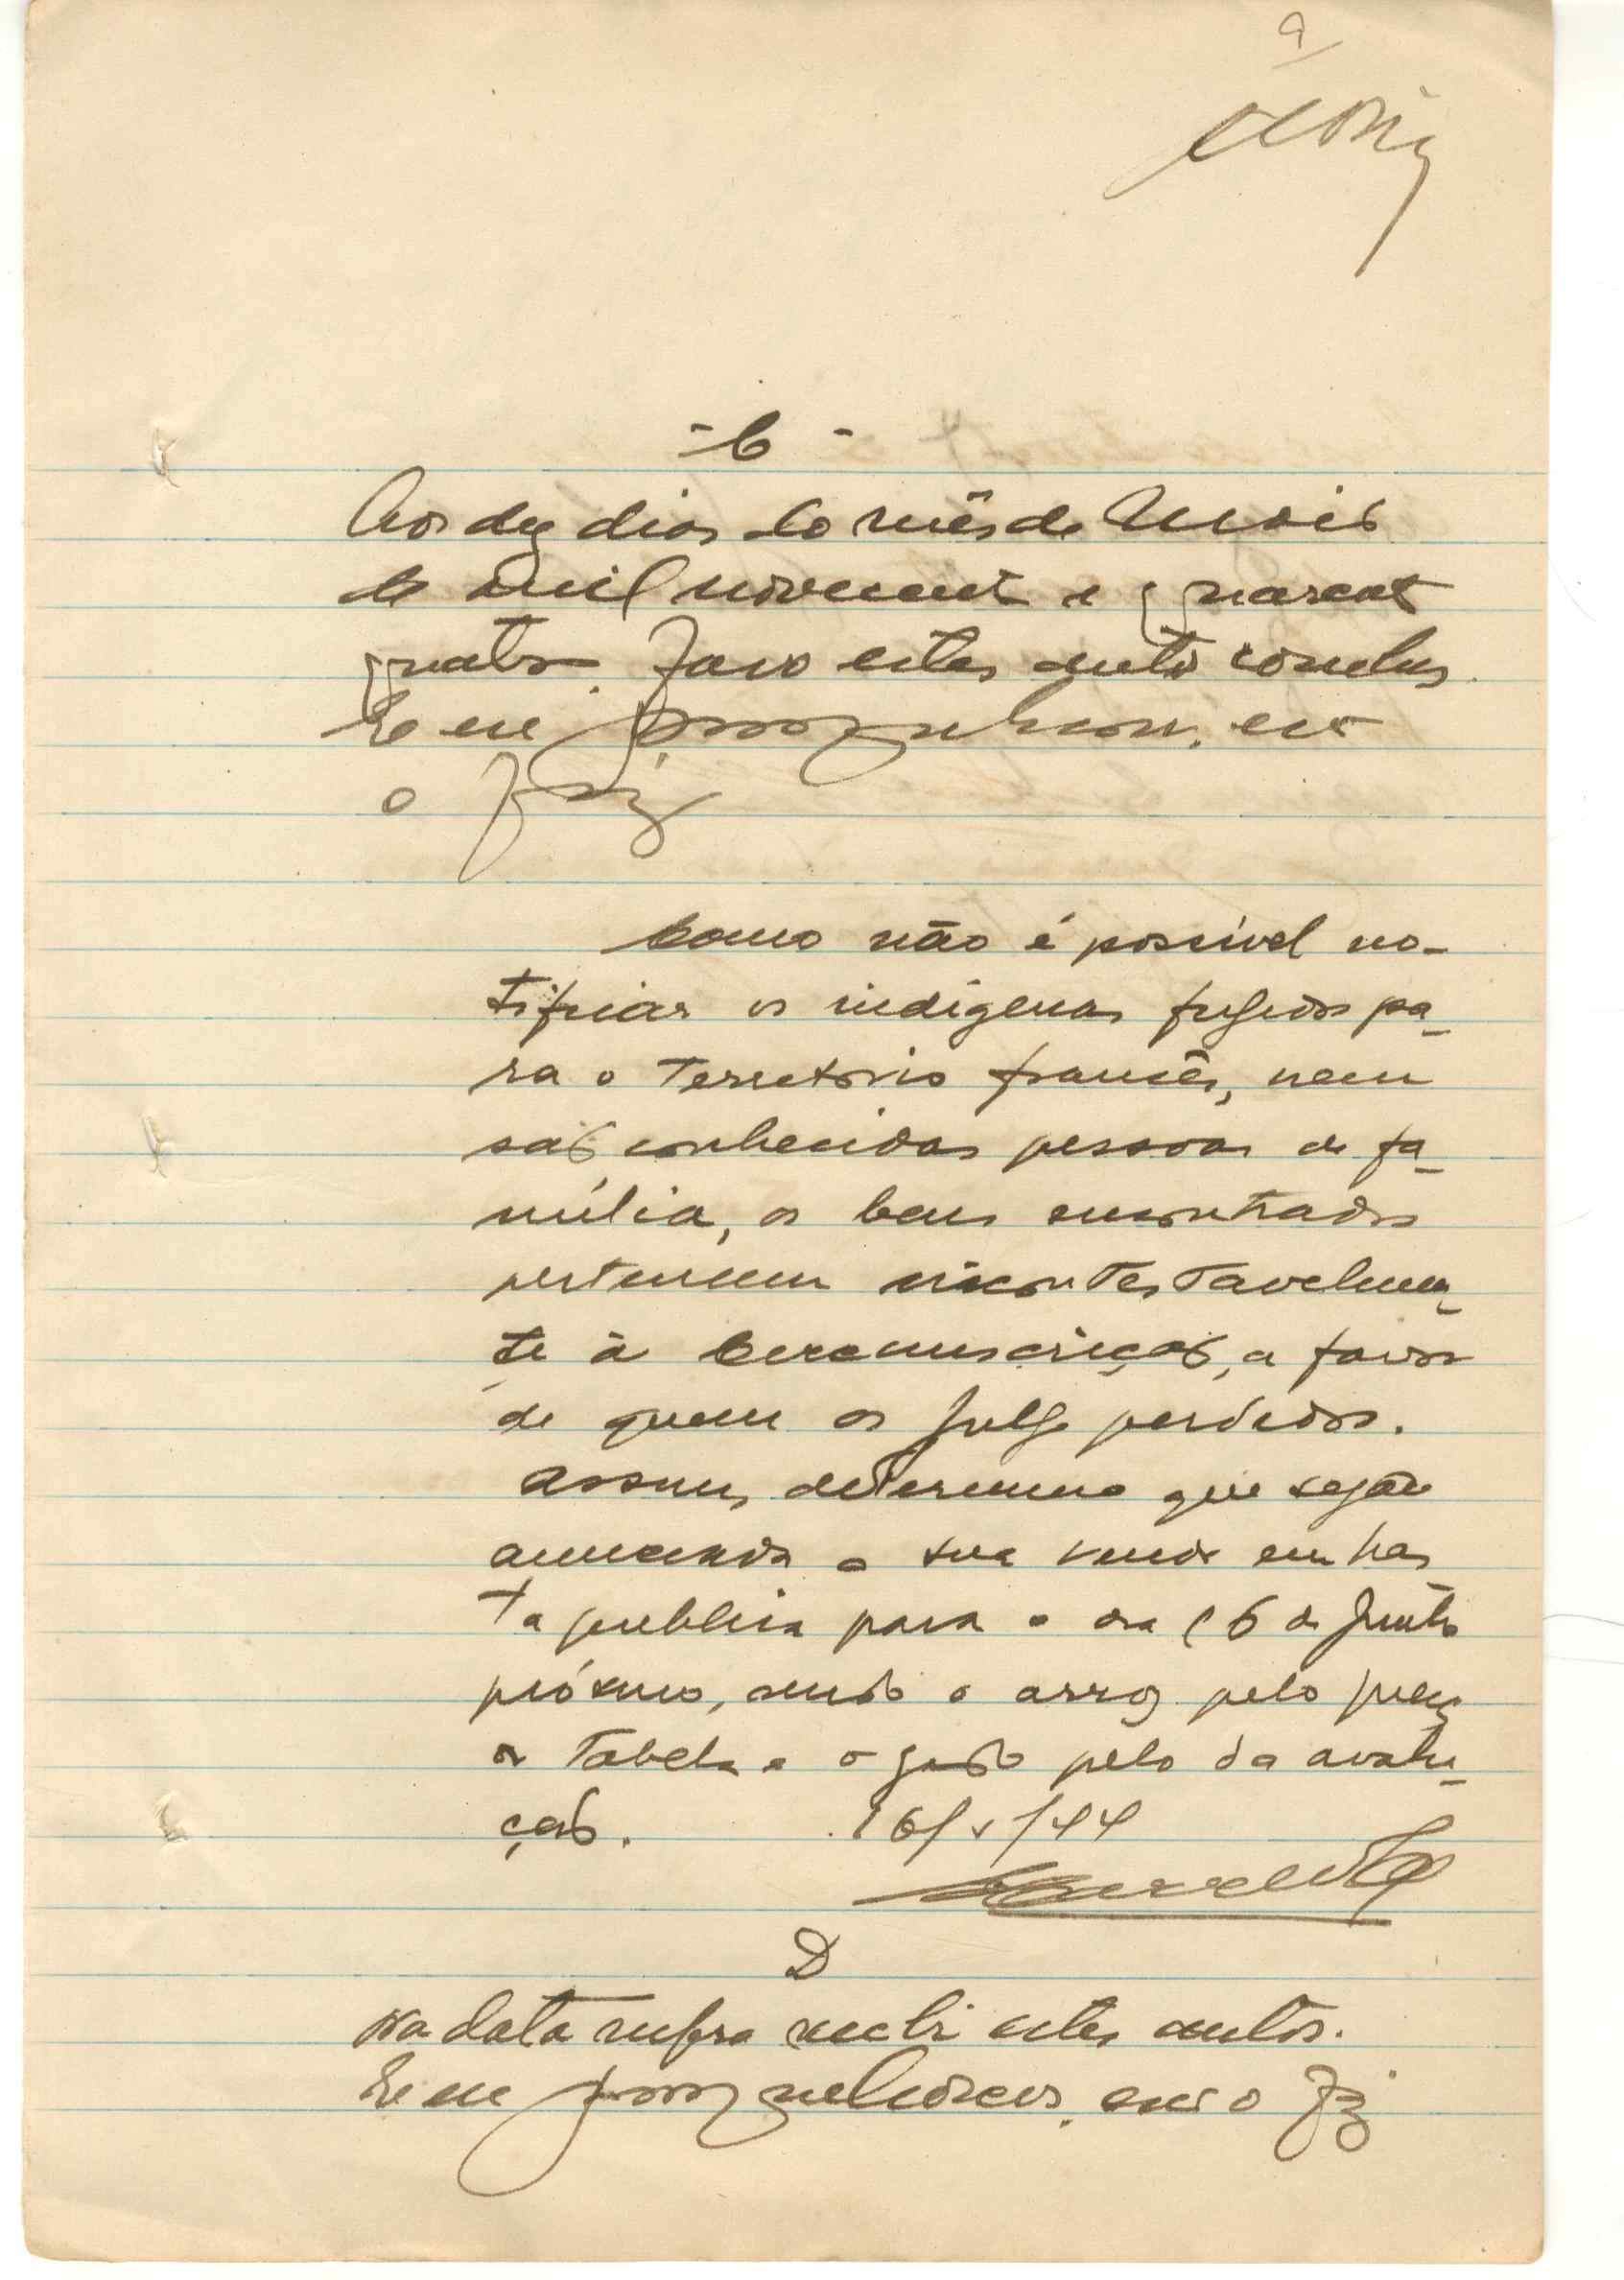 9
- C -
Aos dez dias do mês de Maio
de mil novecent e quarent
quatro. Faço estes autos conclus
E eu escrevi
o fiz
Como não é possível no-
tificar os indígenas fugidos pa-
ra o Território francês, nem
são conhecidas pessoas de fa-
mília, os bens encontrados
pertencem incontestavelmen-
te à Circunscrição, a favor
de quem os julgo perdidos.
Assim, determino que seja
anunciada a sua venda em has
ta publica para o dia 16 de Junho
próximo, sendo o arroz pelo preço
da Tabela e o gado pelo da avalia-
ção. 16/V/44
D
Na data supra recebi estes autos.
E eu que o fiz